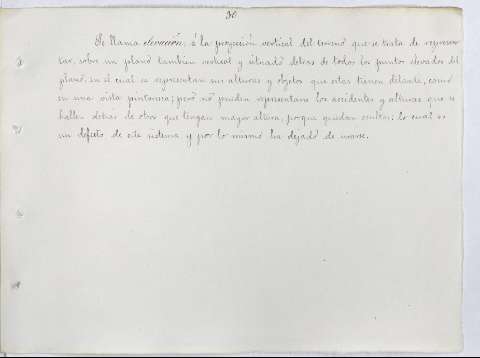 30
Se llama elevacion, á la proyeccion vertical del terreno que se trata de represen
tar, sobre un plano tambien vertical y situado detras de todos los puntos elevados del
plano, en el cual se representan sus alturas y objetos que estas tienen delante, como
en una vista pintoresca; pero no pueden representarse los accidentes y alturas que se
hallen detras de otras que tengan mayor altura, porque quedan ocultos; lo cual es
un defecto de este sistema y por lo mismo ha dejado de usarse.